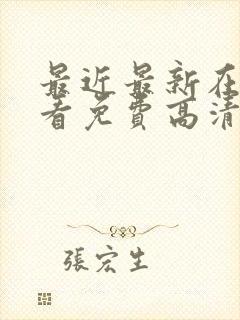 最近最新在
看免费高清
張宏生